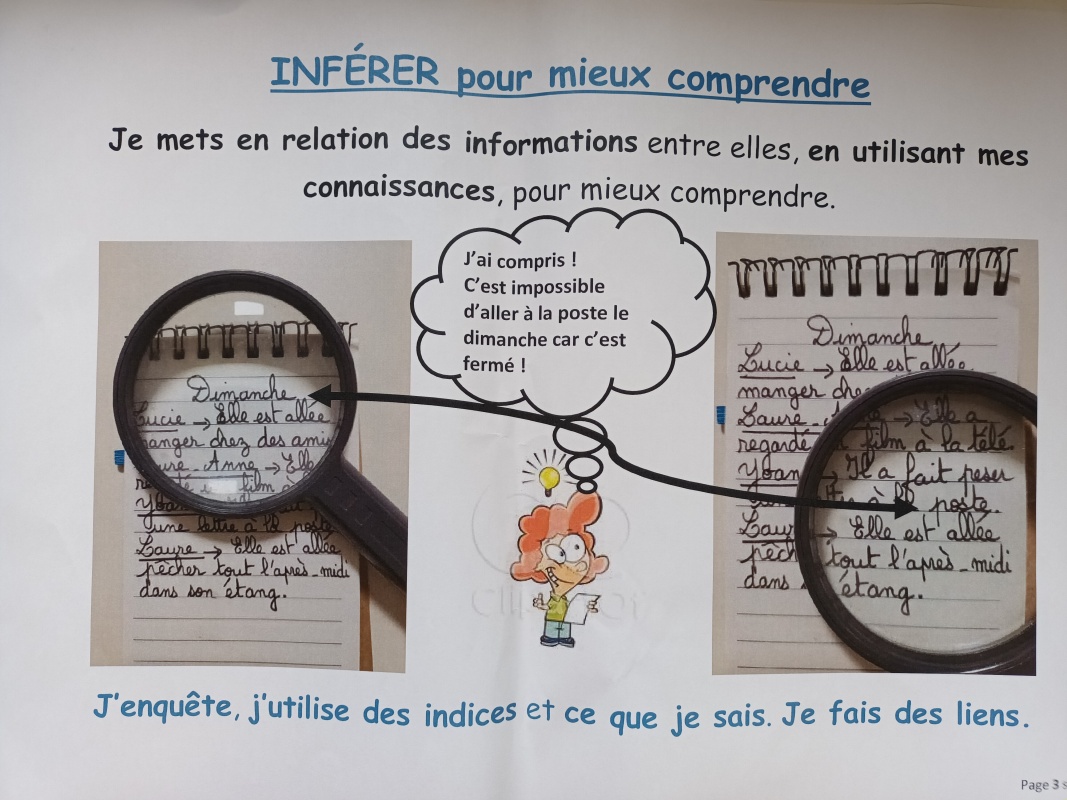 INFÉRER pour mieux comprendre
Je mets en relation des informations entre elles, en utilisant mes
connaissances, pour mieux comprendre.
J'ai compris !
C'est impossible
d'aller à la poste le
dimanche car c'est
fermé !
Dimanche
Lucie → Elle est allée
manger chez des amis
Laure-Anne → Elle
film à
une lettre à la poste
Laure → Elle est allée
pêcher tout l'après-midi
dans son étang.
Dimanche
Lucie → Elle est allée
manger chez
Laure → Elle a
regardé film à la télé.
Yoan → Il a fait peser
à la poste.
Laure → Elle est allée
pêch tout l'après-midi
dans étang.
J'enquête, j'utilise des indices et ce que je sais. Je fais des liens.
Page 3 s